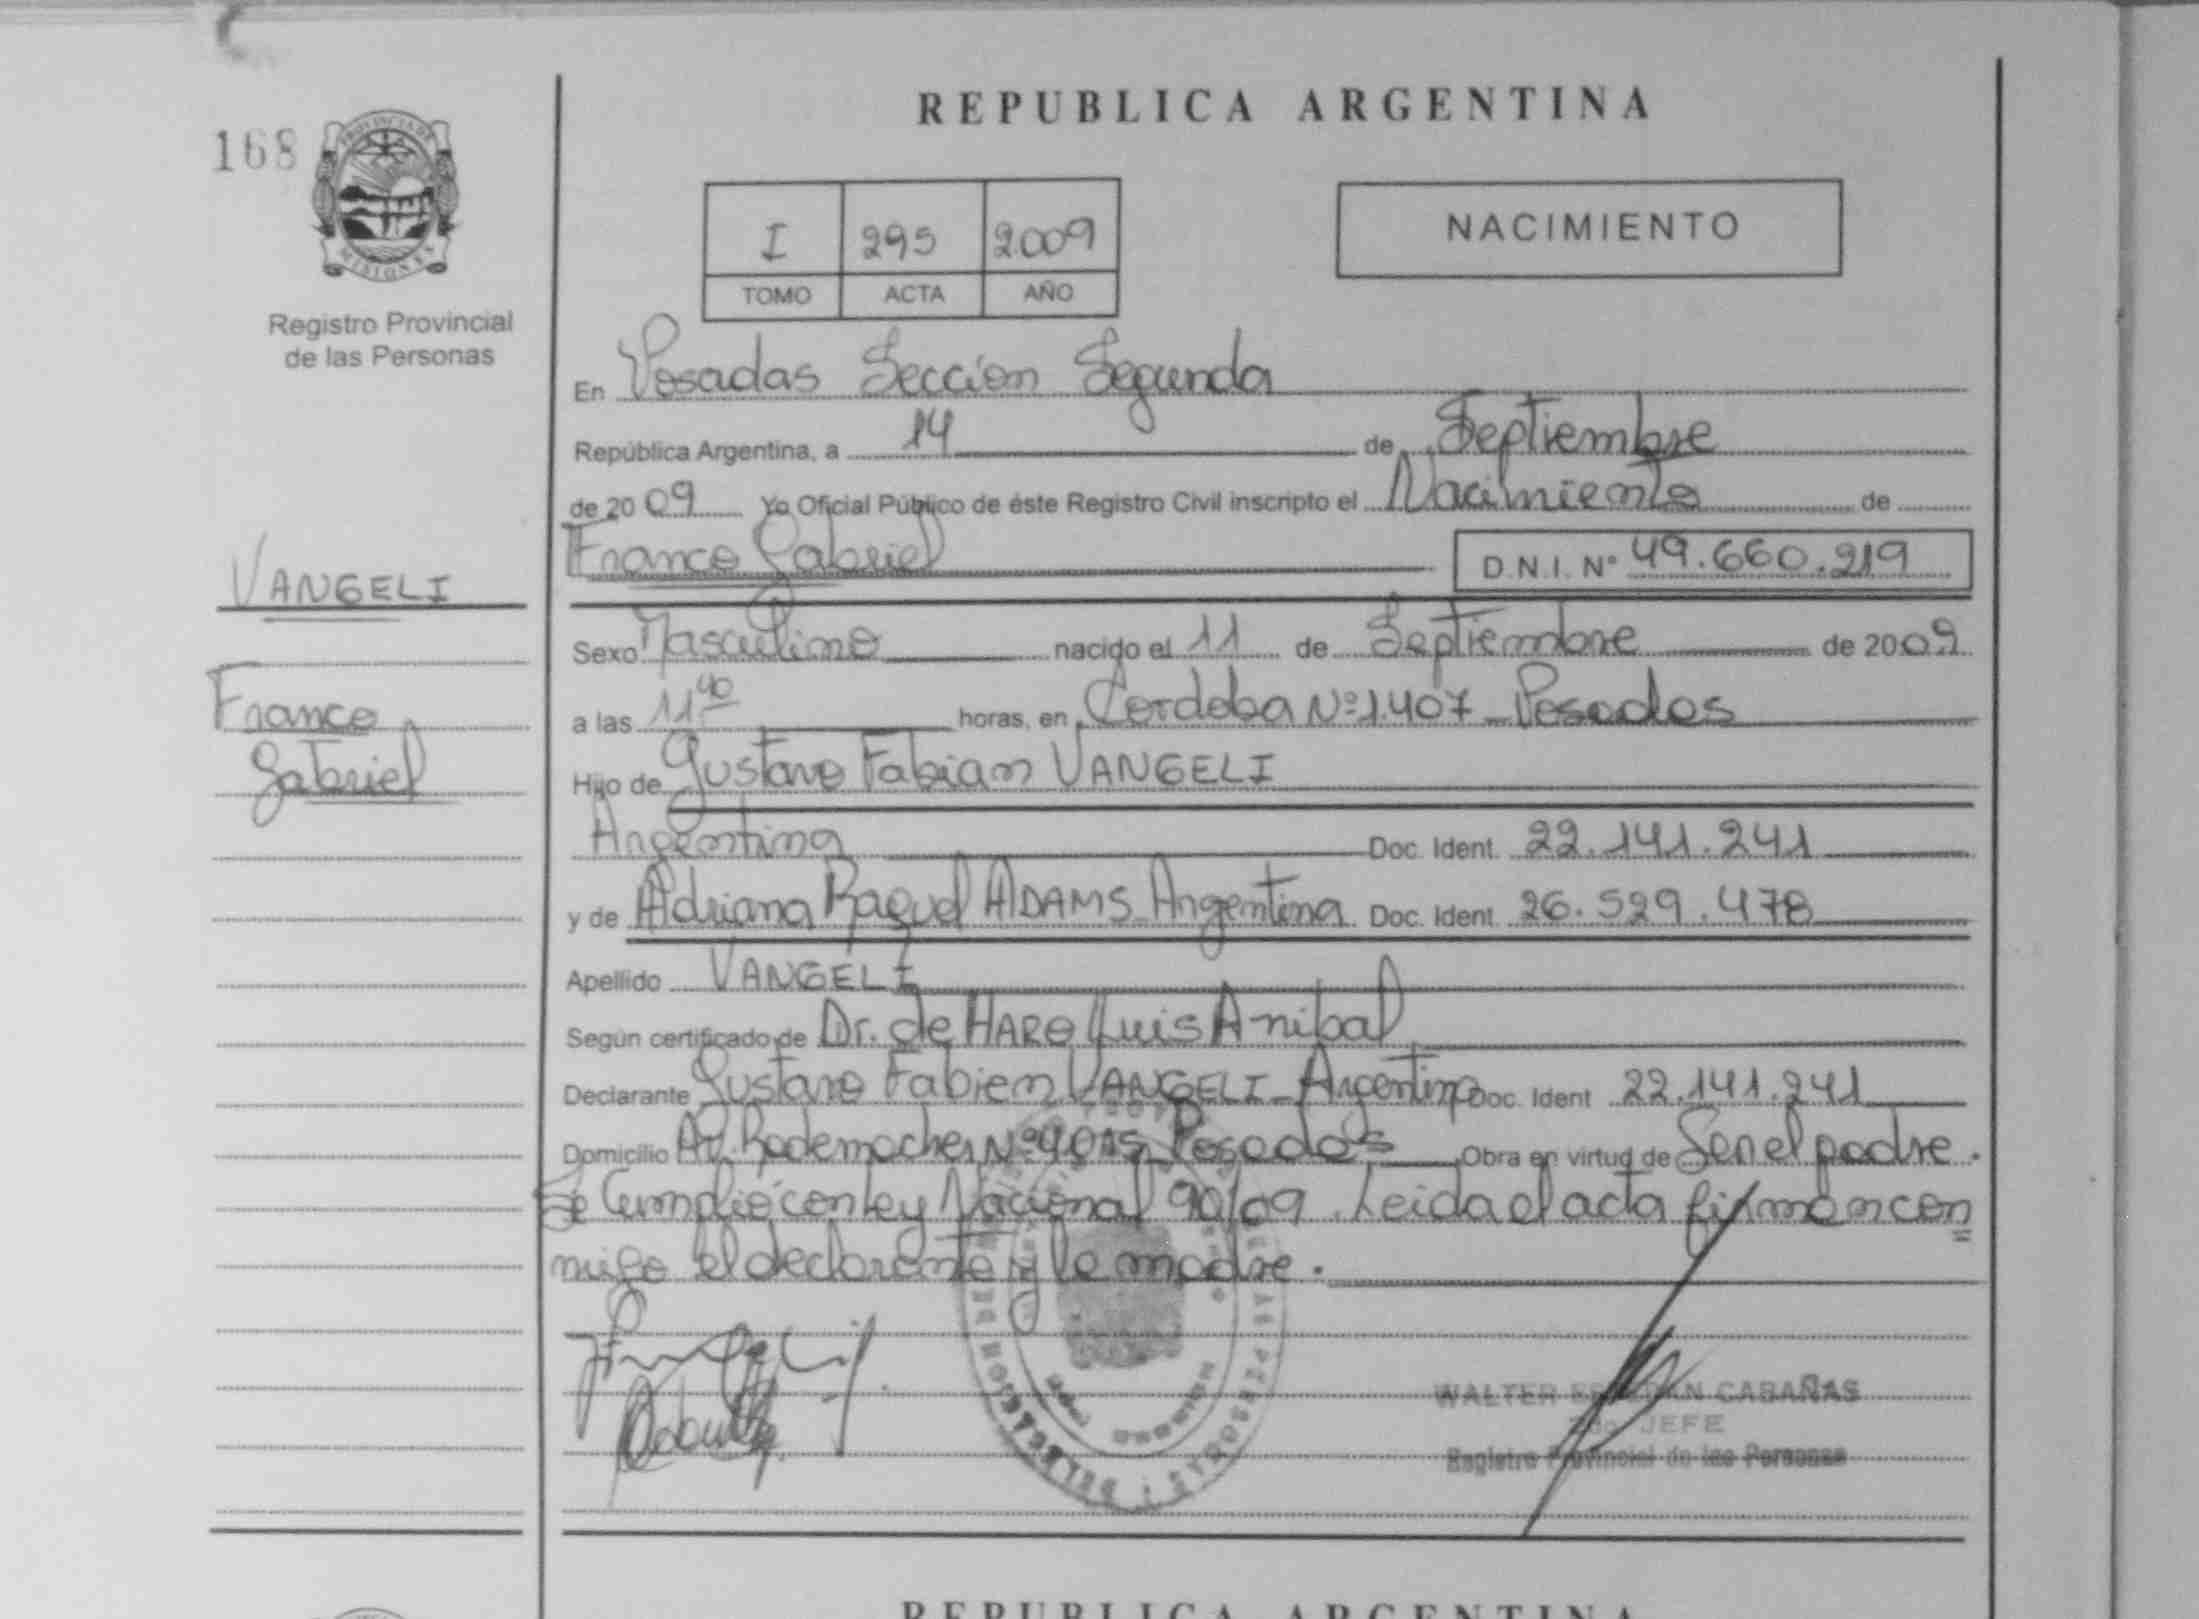 REPUBLICA ARGENTINA
168
PROVINCIA DE
MISIONES
Registro Provincial
de las Personas
I 295 2.009
TOMO ACTA AÑO
NACIMIENTO
En Posadas Sección Segunda
República Argentina, a 14 de Septiembre
de 20 09 Yo Oficial Público de éste Registro Civil inscripto el Nacimiento de
Franco Gabriel D.N.I. Nº 49.660.219
VANGELI
Franco
Gabriel
Sexo Masculino nacido el 11 de Septiembre de 2009
a las 11 40 horas, en Cordoba Nº 1.407 Posadas
Hijo de Gustavo Fabian VANGELI
Argentina Doc. Ident. 22.141.241
y de Adriana Raquel ADAMS Argentina Doc. Ident. 26.529.478
Apellido VANGELI
Según certificado de Dr. de HARO Luis Anibal
Declarante Gustavo Fabian VANGELI Argentino Doc. Ident 22.141.241
Domicilio Av. Rademacher Nº Posadas Obra en virtud de Ser el padre.
Se Cumplió con Ley Nacional 90/09. Leida el acta firman con
migo el declarante y la madre.
WALTER CABAÑAS
2do. JEFE
Registro Provincial de las Personas
REPUBLICA ARGENTINA